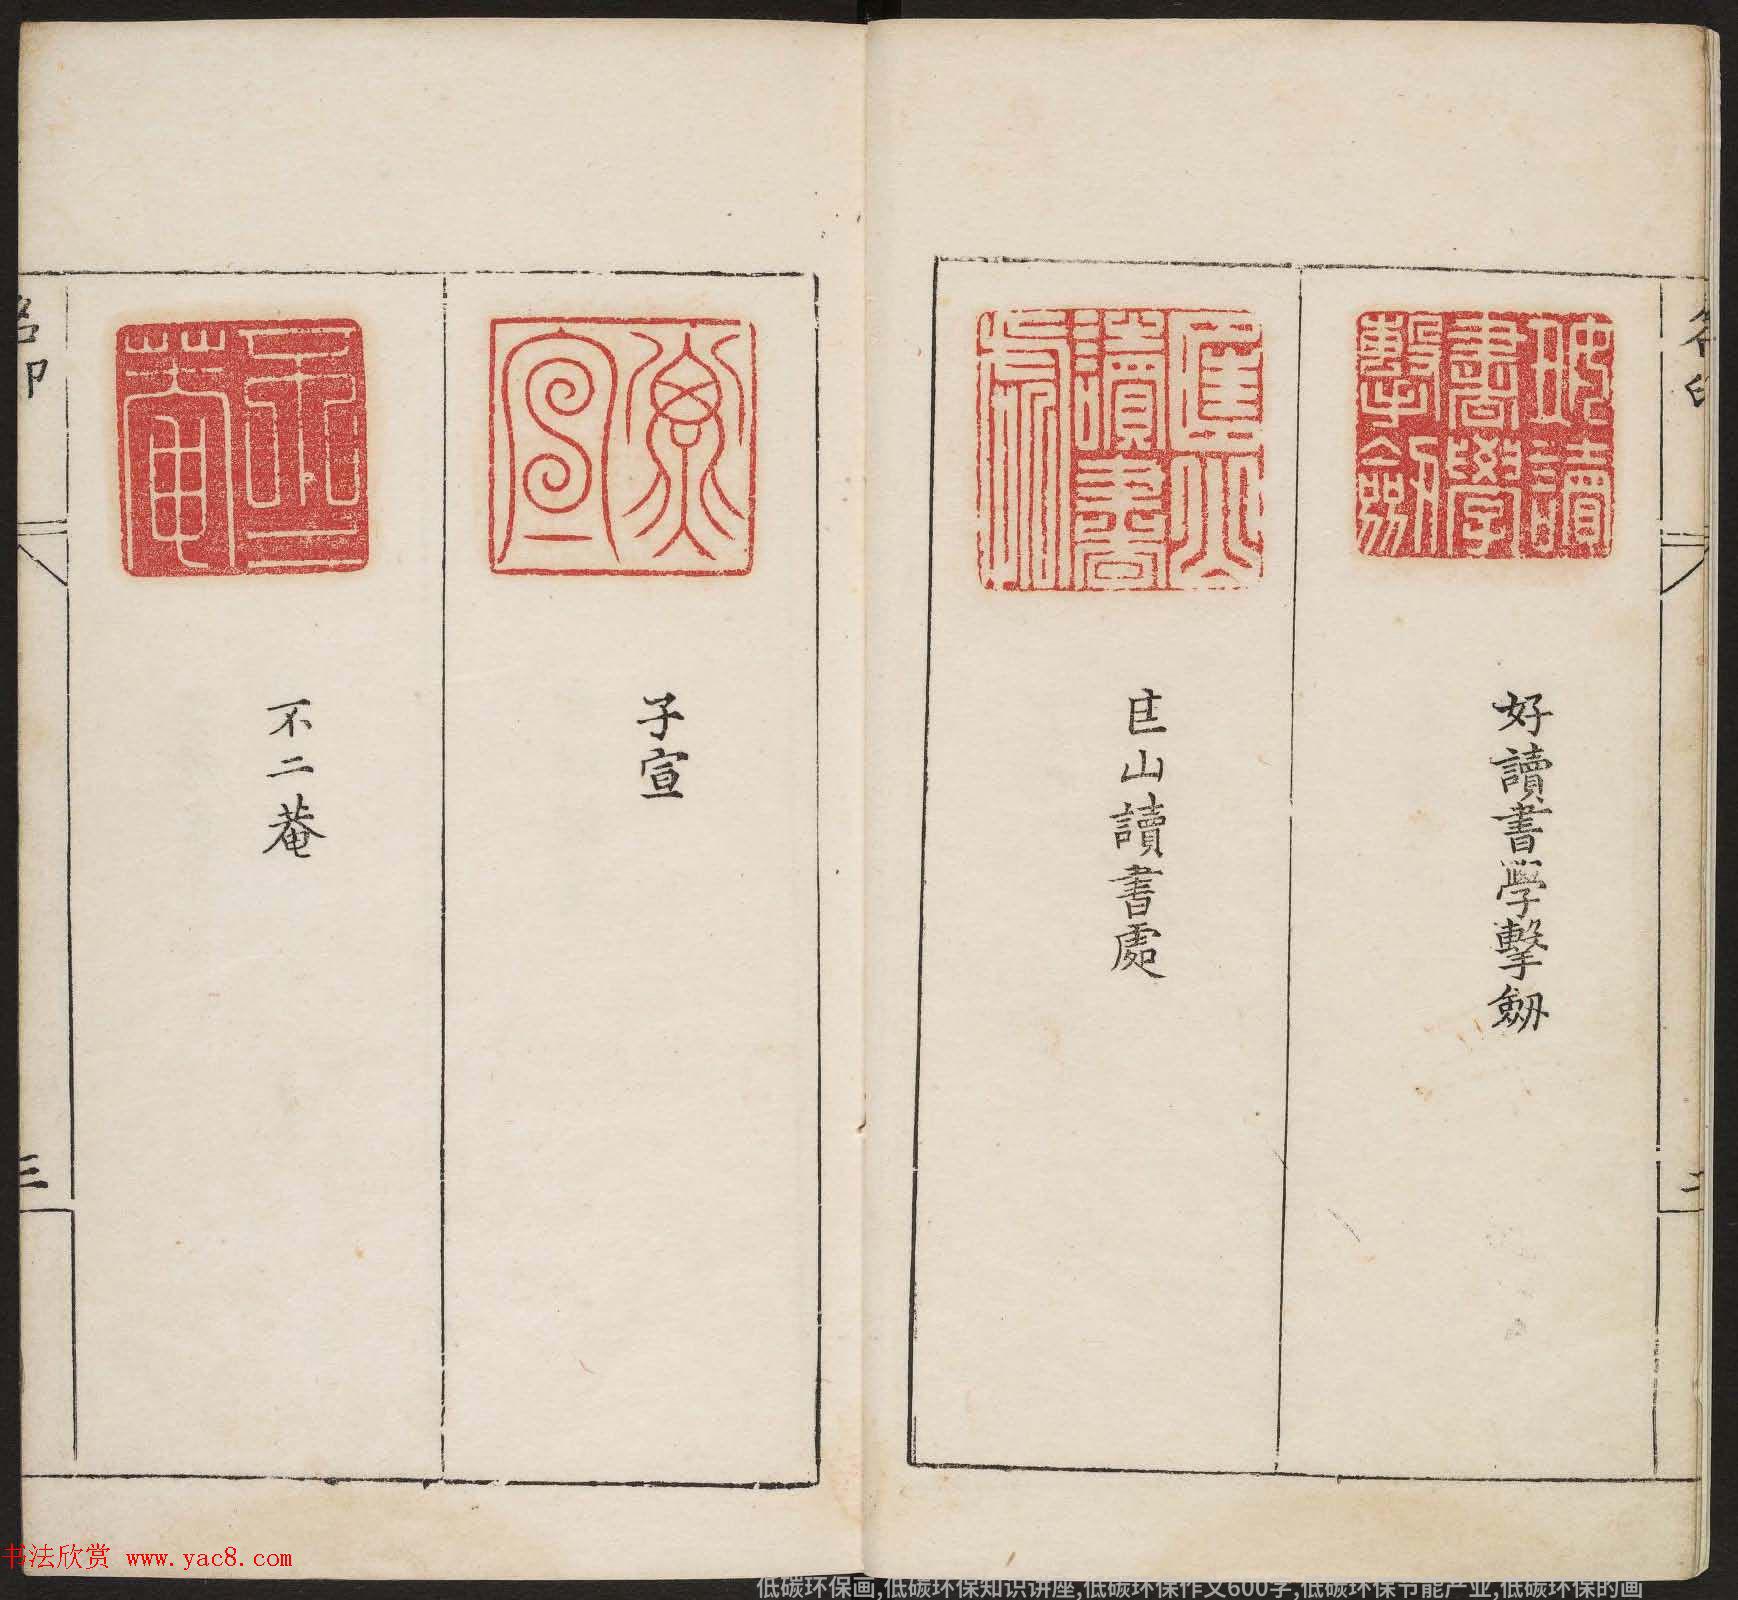 好讀書學擊劒
匡山讀書處
子宣
不二菴
名印
三
书法欣赏 www.yac8.com
低碳环保画,低碳环保知识讲座,低碳环保作文600字,低碳环保节能产业,低碳环保的画